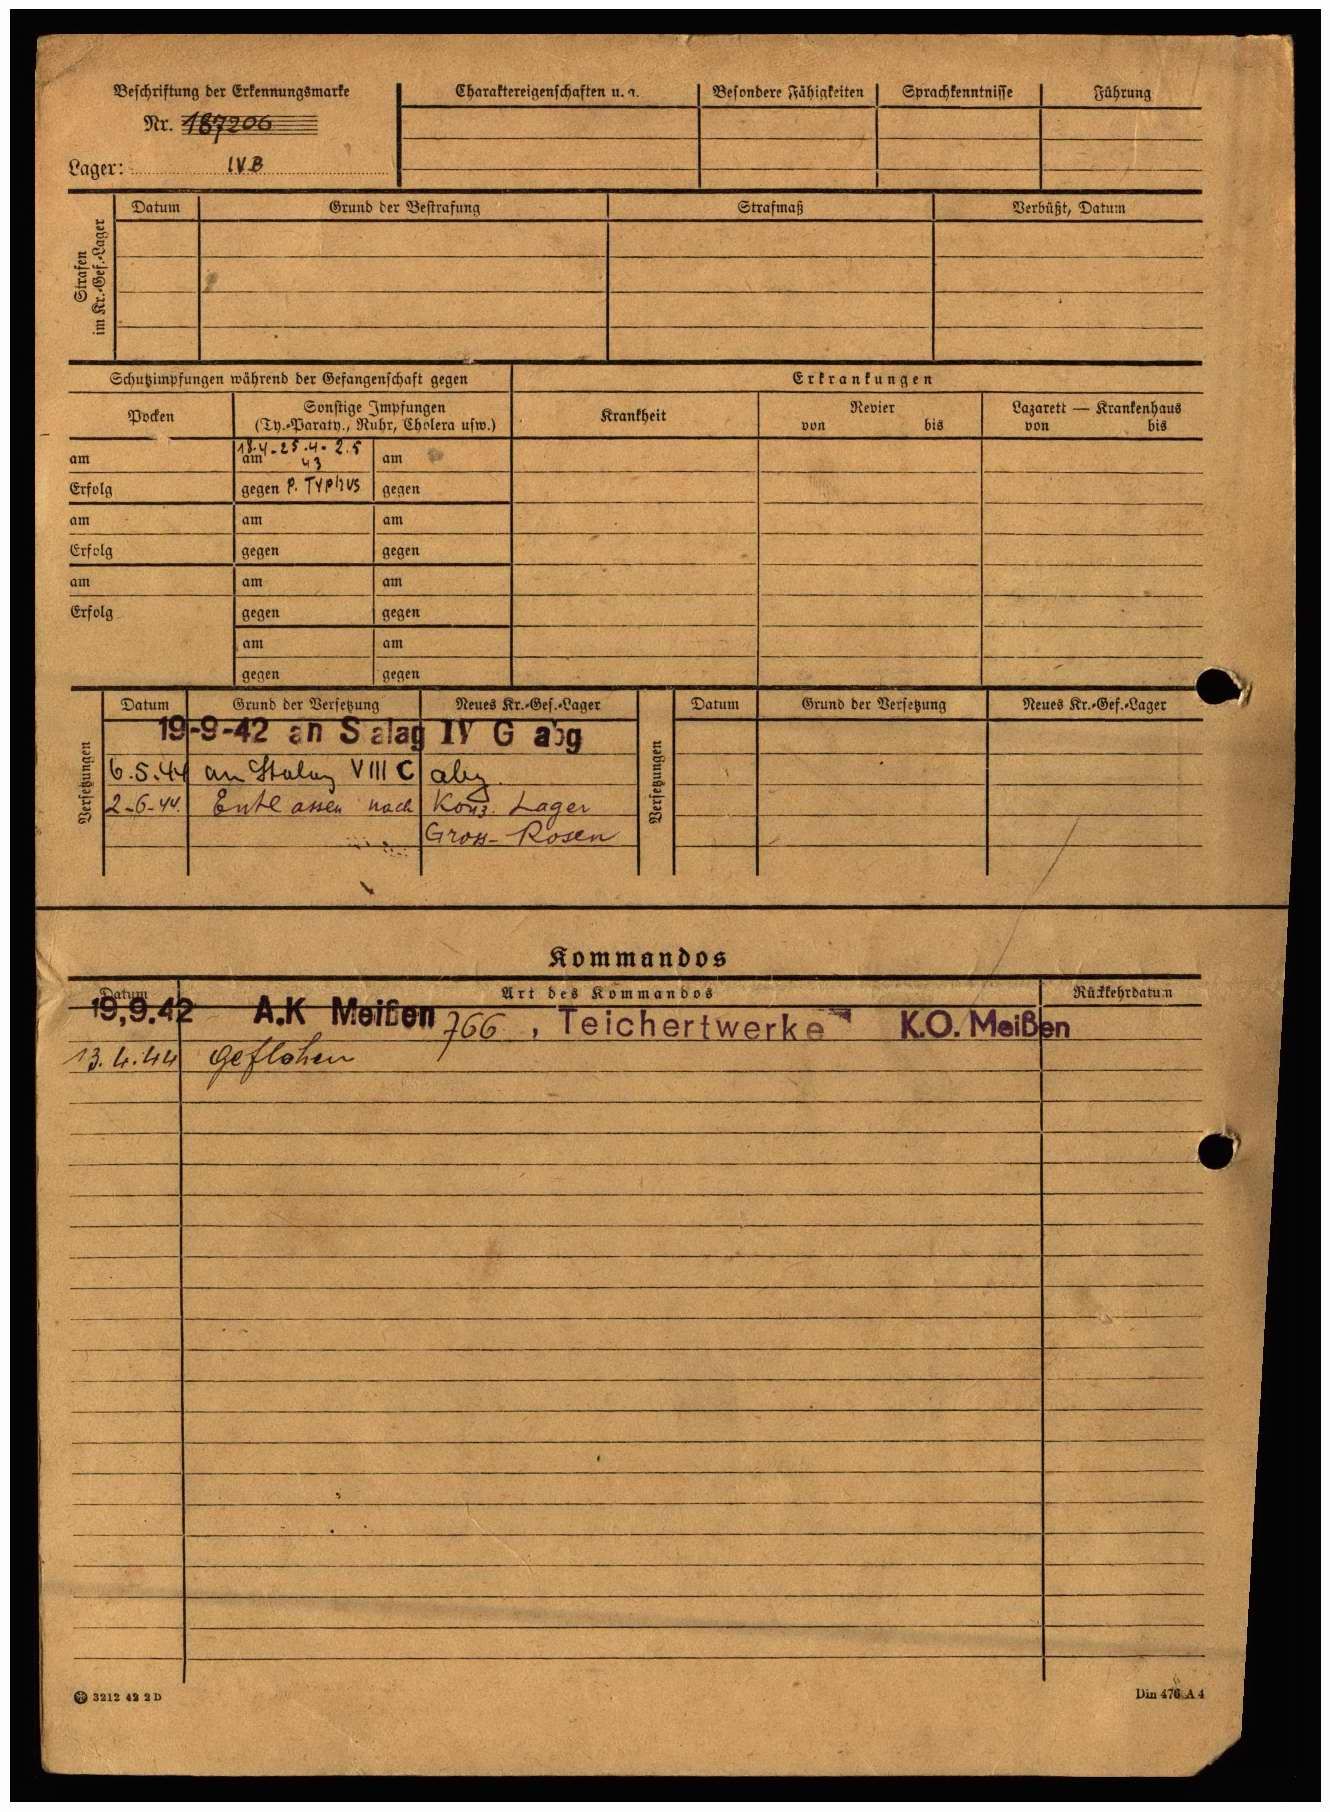 Beschriftung der Erkennungsmarke
Nr. 187206
Lager: IVB
Charaktereigenschaften u. a. Besondere Fähigkeiten Sprachkenntnisse Führung
Strafen im Kr.-Gef.-Lager
Datum Grund der Bestrafung Strafmaß Verbüßt, Datum
Schutzimpfungen während der Gefangenschaft gegen Erkrankungen
Pocken Sonstige Impfungen Krankheit Revier Lazarett — Krankenhaus
(Ty.-Paraty., Ruhr, Cholera usw.) von bis von bis
am am 18.4-25.4-2.5 am
43
Erfolg gegen P. Typhus gegen
am am am
Erfolg gegen gegen
am am am
Erfolg gegen gegen
am am
gegen gegen
Versetzungen
Datum Grund der Versetzung Neues Kr.-Gef.-Lager
19-9-42 an Stalag IV G abg
6.5.44 an Stalag VIII C abg.
2-6-44. Entlassen nach Konz. Lager
Gross-Rosen
Versetzungen
Datum Grund der Versetzung Neues Kr.-Gef.-Lager
Kommandos
Datum Art des Kommandos Rückkehrdatum
19,9.42 A.K Meißen 766 , Teichertwerke K.O. Meißen
13.4.44 geflohen
3212 42 2 D Din 476 A 4